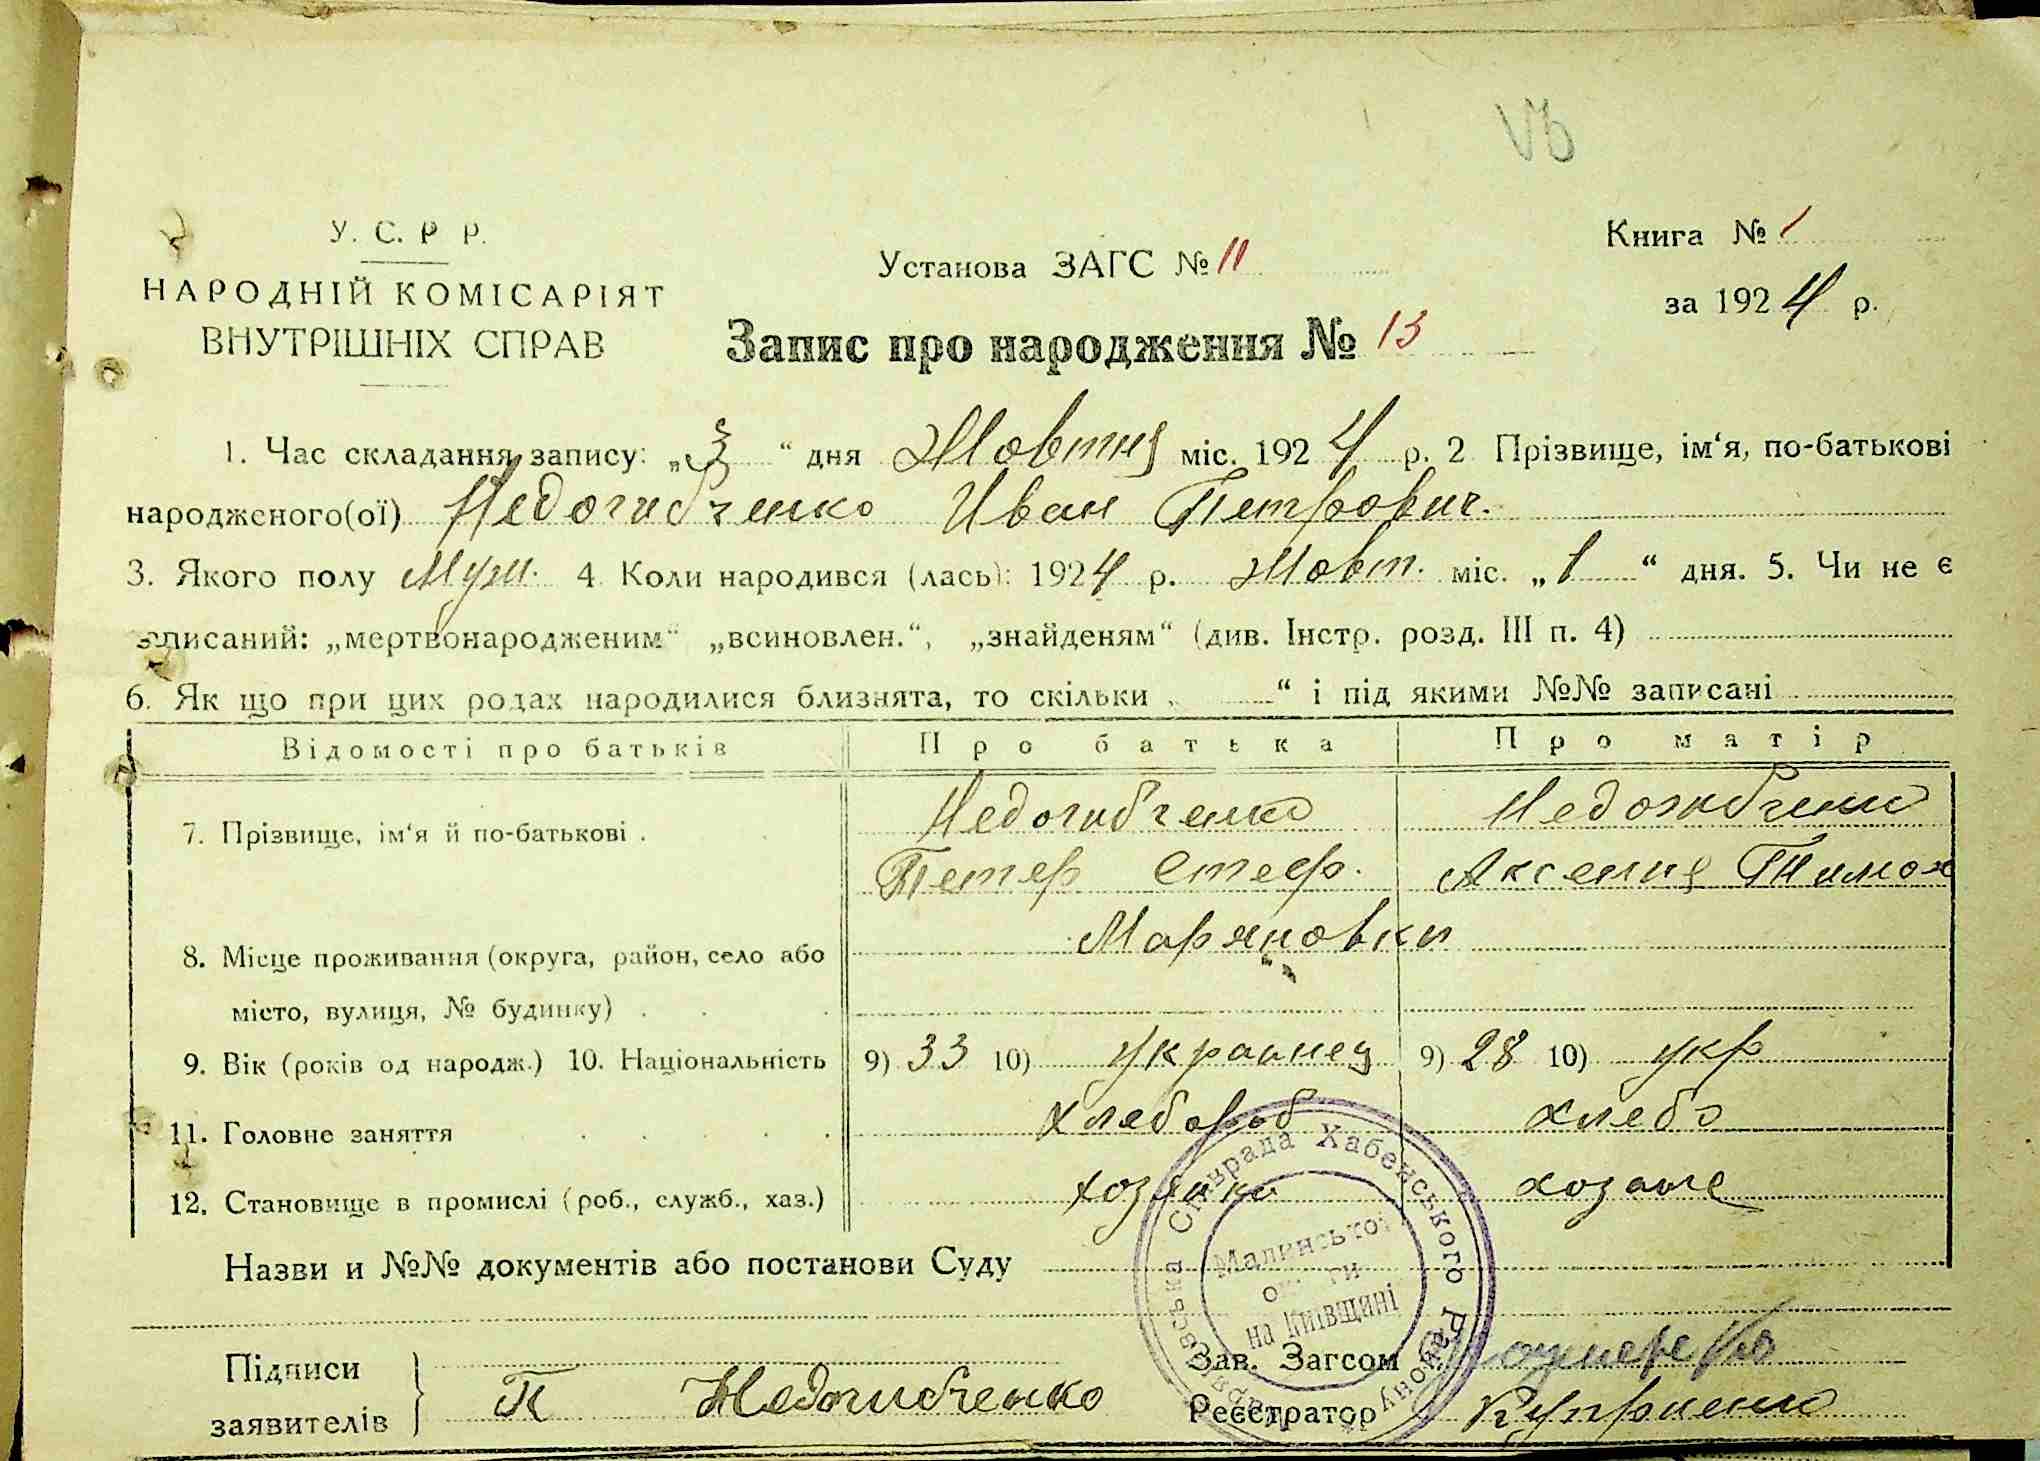 У. С. Р Р.
НАРОДНІЙ КОМІСАРІЯТ
ВНУТРІШНІХ СПРАВ
Установа ЗАГС № 11
Книга № 1
за 1924 р.
Запис про народження № 13
1. Час складання запису: „3“ дня Жовтня міс. 1924 р. 2 Прізвище, ім‘я, по-батькові
народженого(ої) Недогибченко Иван Петрович.
3. Якого полу Муж. 4 Коли народився (лась): 1924 р. Жовт. міс. „1“ дня. 5. Чи не є
записаний: „мертвонародженим“ „всиновлен.“, „знайденям“ (див. Інстр. розд. III п. 4)
6. Як що при цих родах народилися близнята, то скільки „ “ і під якими №№ записані
Відомості про батьків Про батька Про матір
7. Прізвище, ім‘я й по-батькові . Недогибченко Недогибченко
Петер Стеф. Аксения Тимох
8. Місце проживання (округа, район, село або Маряновки
місто, вулиця, № будинку) .
9. Вік (років од народж.) 10. Національність 9) 33 10) украинец 9) 28 10) укр
11. Головне заняття хлебороб хлебо
12. Становище в промислі (роб., служб., хаз.)
Назви и №№ документів або постанови Суду
Сільрада Хабенського Району
Малинської
округи
на Київщині
Підписи
заявителів П Недогибченко
Зав. Загсом
Реєстратор Куприенко